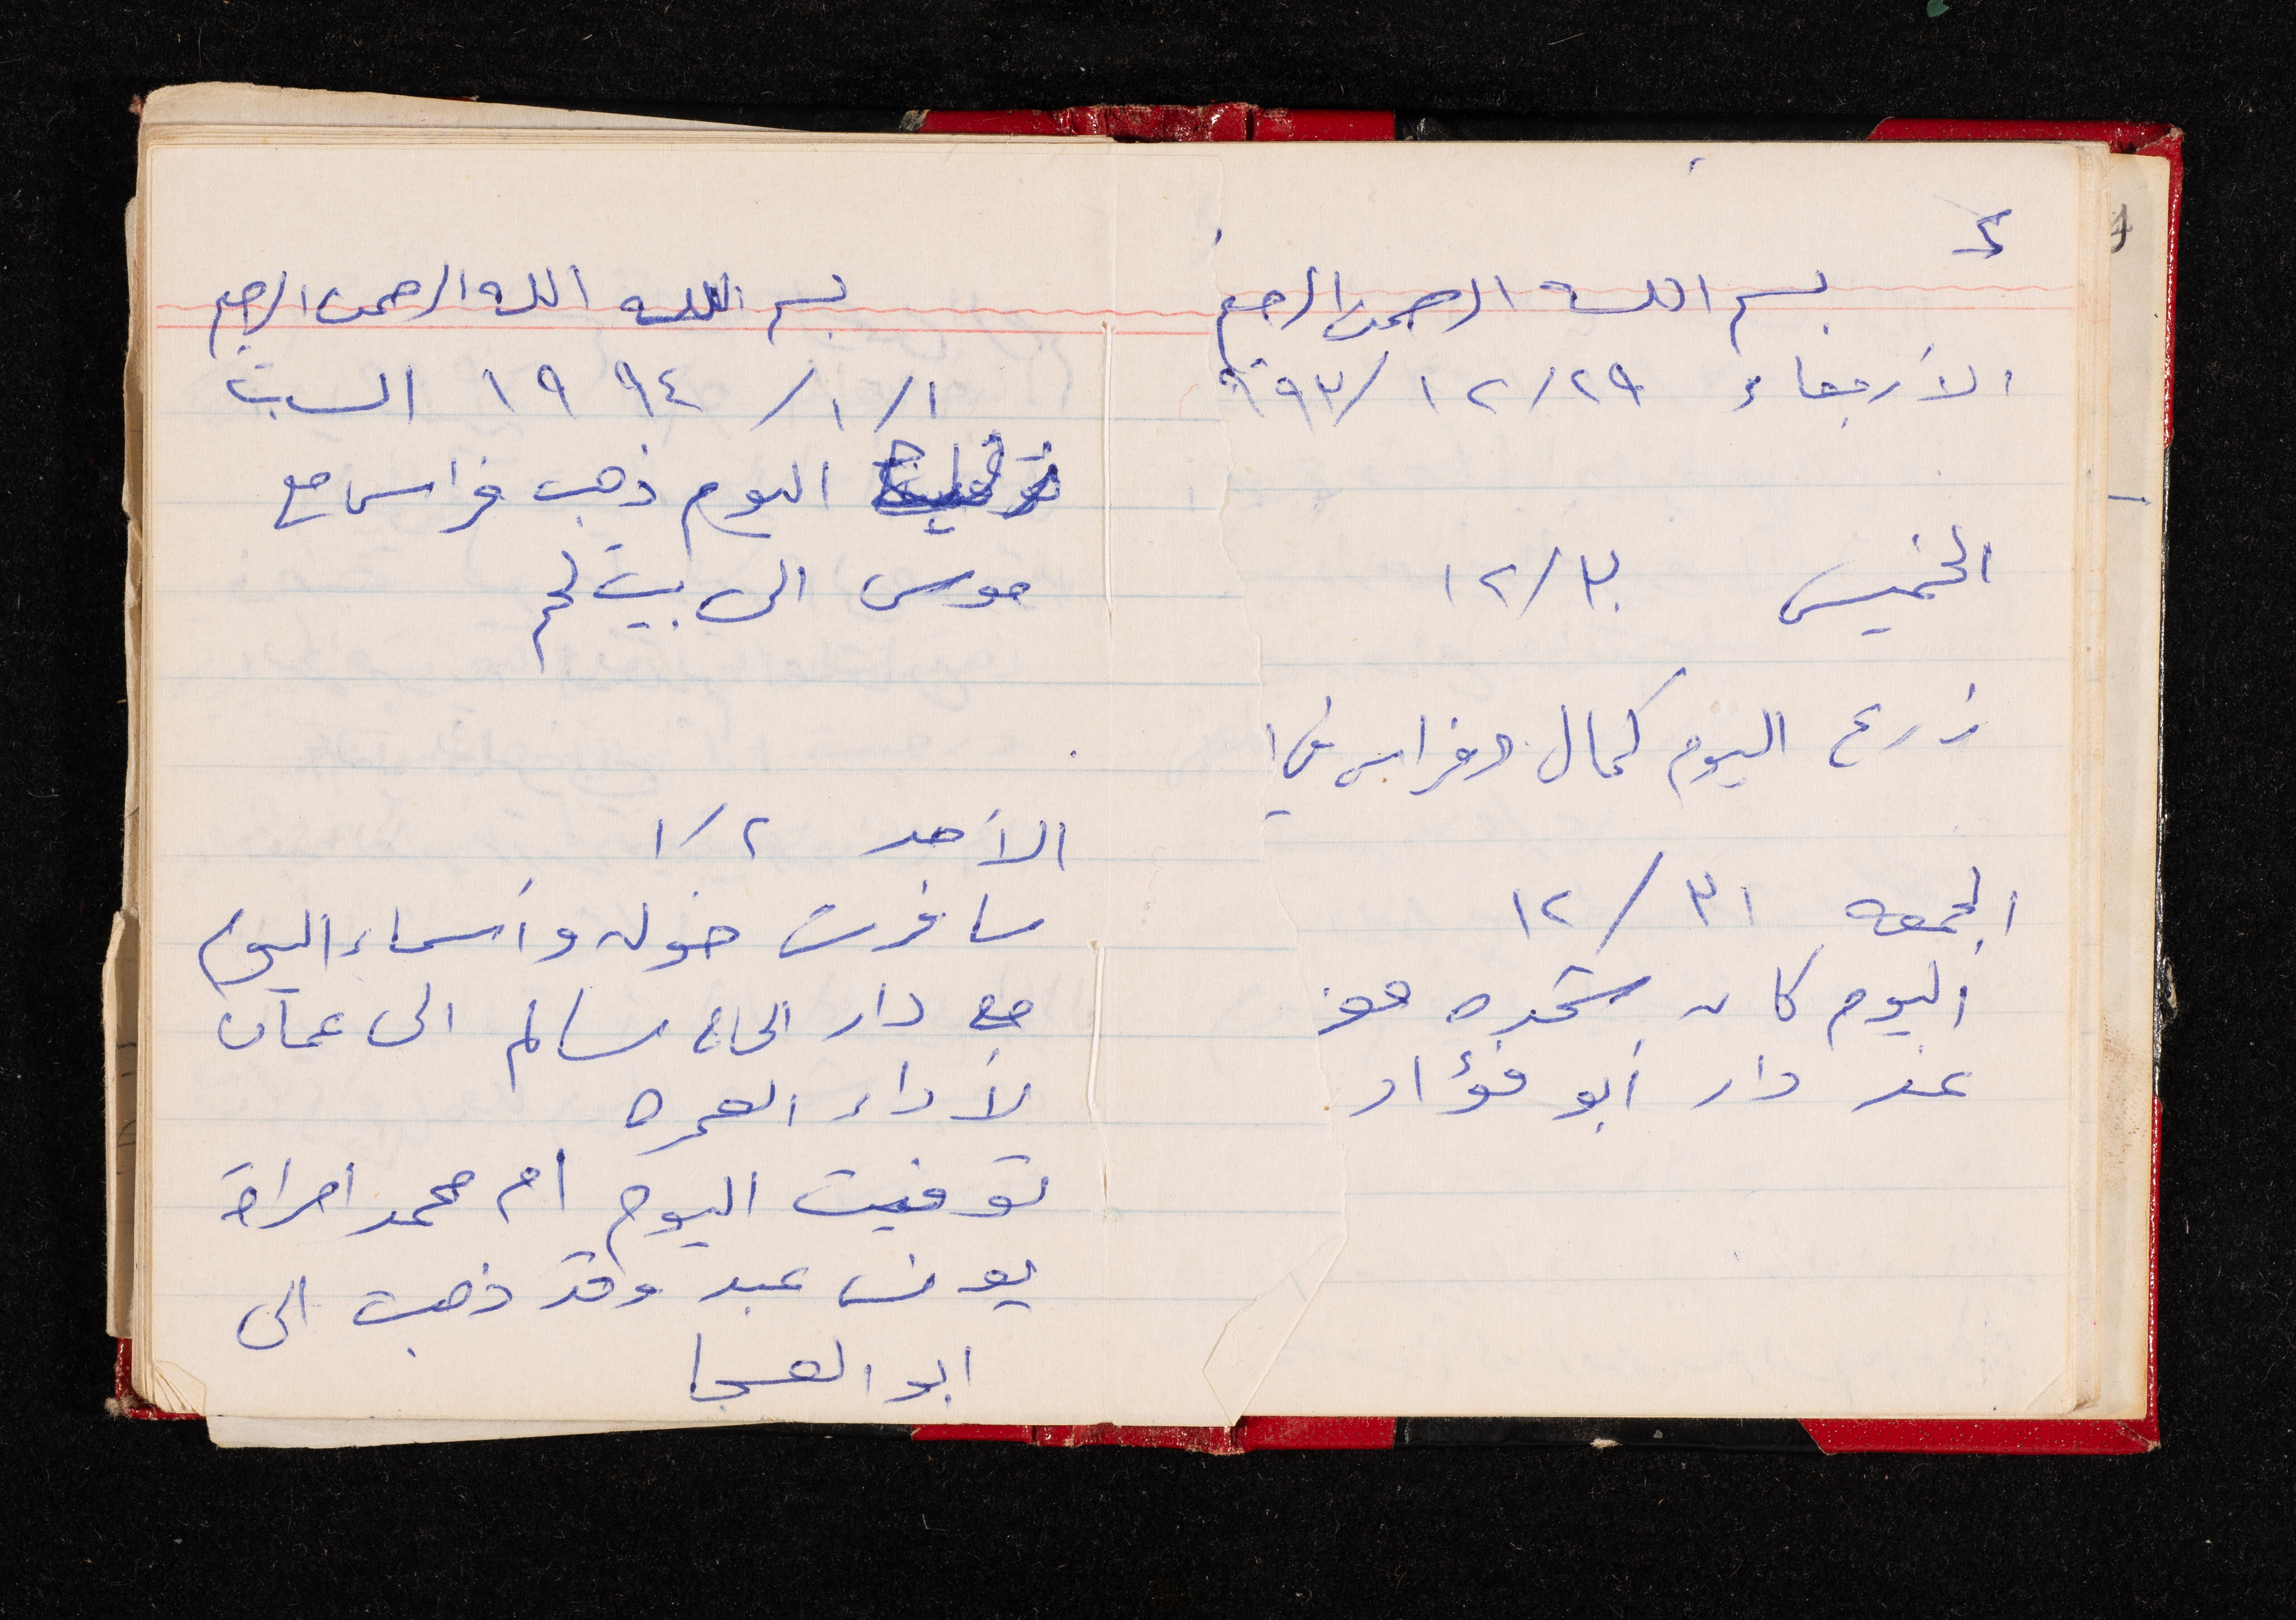 ٤
بسم الله الرحمن الرحيم
الأربعاء ٢٩/١٢/٩٩٣
الخميس ٣٠/١٢
زرع اليوم كمال وفراس في ا
الجمعه ٣١/١٢
اليوم كان سحره
عند دار أبو فؤاد
بسم الله الله الرحمن الرحيم
١/١/١٩٩٤ السبت
اليوم ذهب فراس مع
موسى الى بيت لحم
الأحد ٢/١
سافرت خوله وأسماء اليوم
مع دار الحاج سالم الى عمان
لأداء العمره
توفيت اليوم ام محمد امرأة
يونس عبد وقد ذهبت الى
ابو العسجا